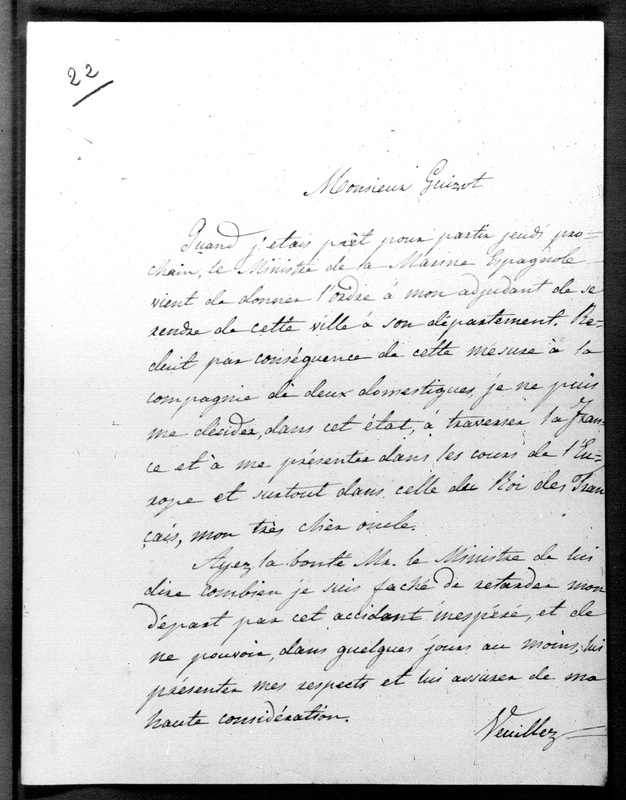 22
Monsieur Guizot
Quand j'etais prêt pour partir jeudi pro-
chain, le Ministre de la Marine Espagnole
vient de donner l'ordre à mon adjudant de se
rendre de cette ville à son département. Re-
duit par conséquence de cette mesure à la
compagnie de deux domestiques, je ne puis
me décider, dans cet état, à traverser la Fran-
ce et à me présenter dans les cours de l'Eu-
rope et surtout dans celle du Roi des Fran
çais, mon très chèr oncle.
Ayez la bonté Mr. le Ministre de lui
dire combien je suis faché de retarder mon
départ par cet accident inespéré, et de
ne pouvoir, dans quelques jours au moins, lui
présenter mes respects et lui assurer de ma
haute considération.
Veuillez